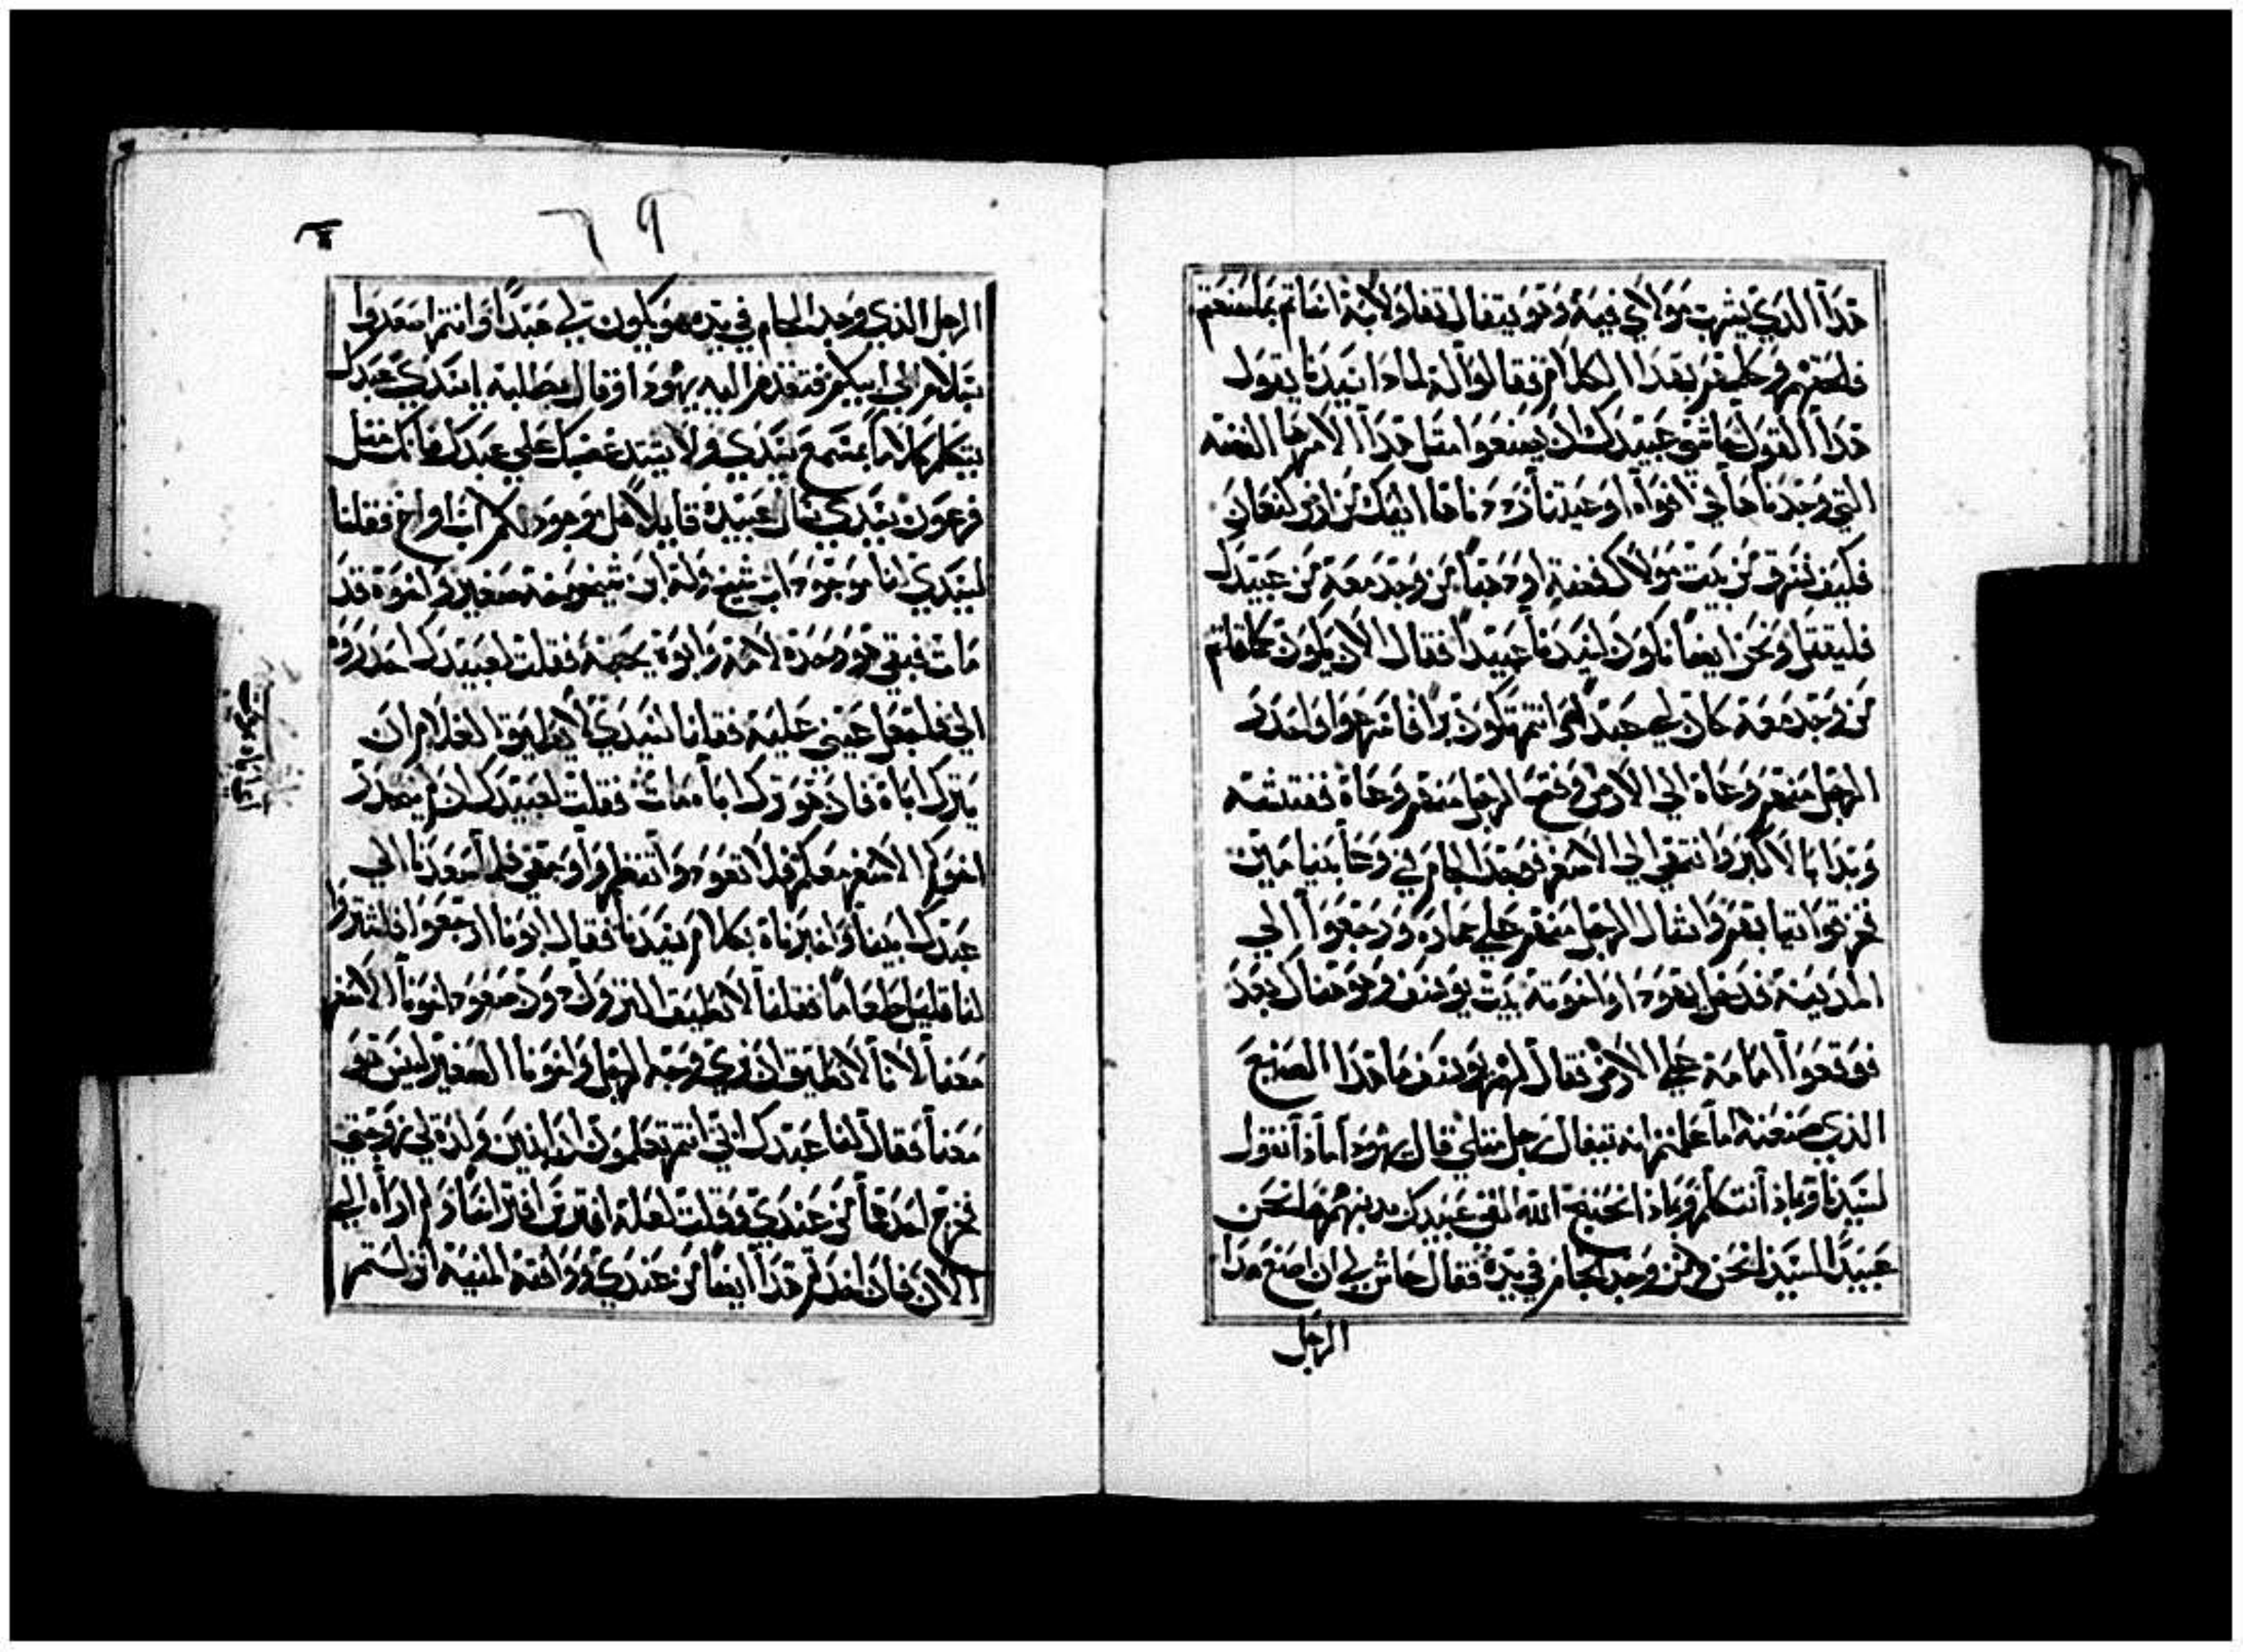 هذا الذي يشرب مولاي فيه وهو يتفال تفاولا به اساتم بما صنعتم
فلحقهم وكلمهم بهذا الكلام فقالوا له لماذا سيدنا يقول
هذا القول حاشى عبيدك ان يصنعوا مثل هذا الامر ها الفضه
التي وجدناها في افواه اوعيتنا رددناها اليك من ارض كنعان
فكيف نسرق من بيت مولاك فضة او ذهبا من وجد معه من عبيدك
فليقتل ونحن ايضا نكون لسيدنا عبيدا فقال الان يكون كما قلتم
من وجد معه كان لي عبدا وانتم تكون برا فاسرعوا واحدر
الرجل منهم وعاه الى الارض وفتح الرجل منهم وعاه ففتشه
وبدا بالاكبر وانتهى الى الاصغر فوجد الجام في وعا بنيامين
فخرقوا ثيابهم وانثال الرجل منهم على حماره ورجعوا الى
المدينه فدخل يهودا واخوته بيت يوسف وهو هناك بعد
فوقعوا امامه على الارض فقال لهم يوسف ما هذا الصنيع
الذي صنعته اما علمتم انه يتفال رجل مثلي قال يهودا ماذا نقول
لسيدنا وبماذا نتكلم وبماذا نحتج الله الفى عبيدك مدينهم ها نحن
عبيدا لسيدنا نحن ومن وجد الجام في يده فقال حاش لي ان اصنع هذا
الرجل
٦٩
الرجل الذي وجد الجام في يده هو يكون لي عبدا وانتم اصعدوا
بسلام الى ابيكم فتقدم اليه يهودا وقال بطلبه يا سيدي عبدك
يتكلم كلاما بمسمع سيدي ولا يشتد غضبك على عبدك فانك مثل
فرعون سيدي سال عبيده قايلا هل موجود لكم اب او اخ فقلنا
لسيدي انا موجود اب شيخ وله ابن شيخوخه صغير واخوه قد
مات فبقي هو وحده لامه وابوه يحبه فقلت لعبيدك احدروه
الي فلتجعل عيني عليه فقلنا لسيدي لا يطيق الغلام ان
يترك اباه فاذ هو ترك اباه مات فقلت لعبيدك ان لم ينحدر
اخوكم الاصغر معكم فلا تعودوا تنظروا وجهي فلما صعدنا الى
عبدك ابينا واخبرناه بكلام سيدنا فقال ابونا ارجعوا فاشتروا
لنا قليل طعاما فقلنا لا نطيق النزول دون صعود اخونا الاصغر
معنا لانا لا نطيق ان نرى وجه الرجل واخونا الصغير ليس هو
معنا فقال لنا عبدك ابي انتم تعلمون ان اثنين ولده لي زوجتي
فخرج احدهما من عندي وقلت لعله افترس افتراسا ولم اراه الى
الان فان اخذتم هذا ايضا من عندي ووافته المنيه اذ لستم